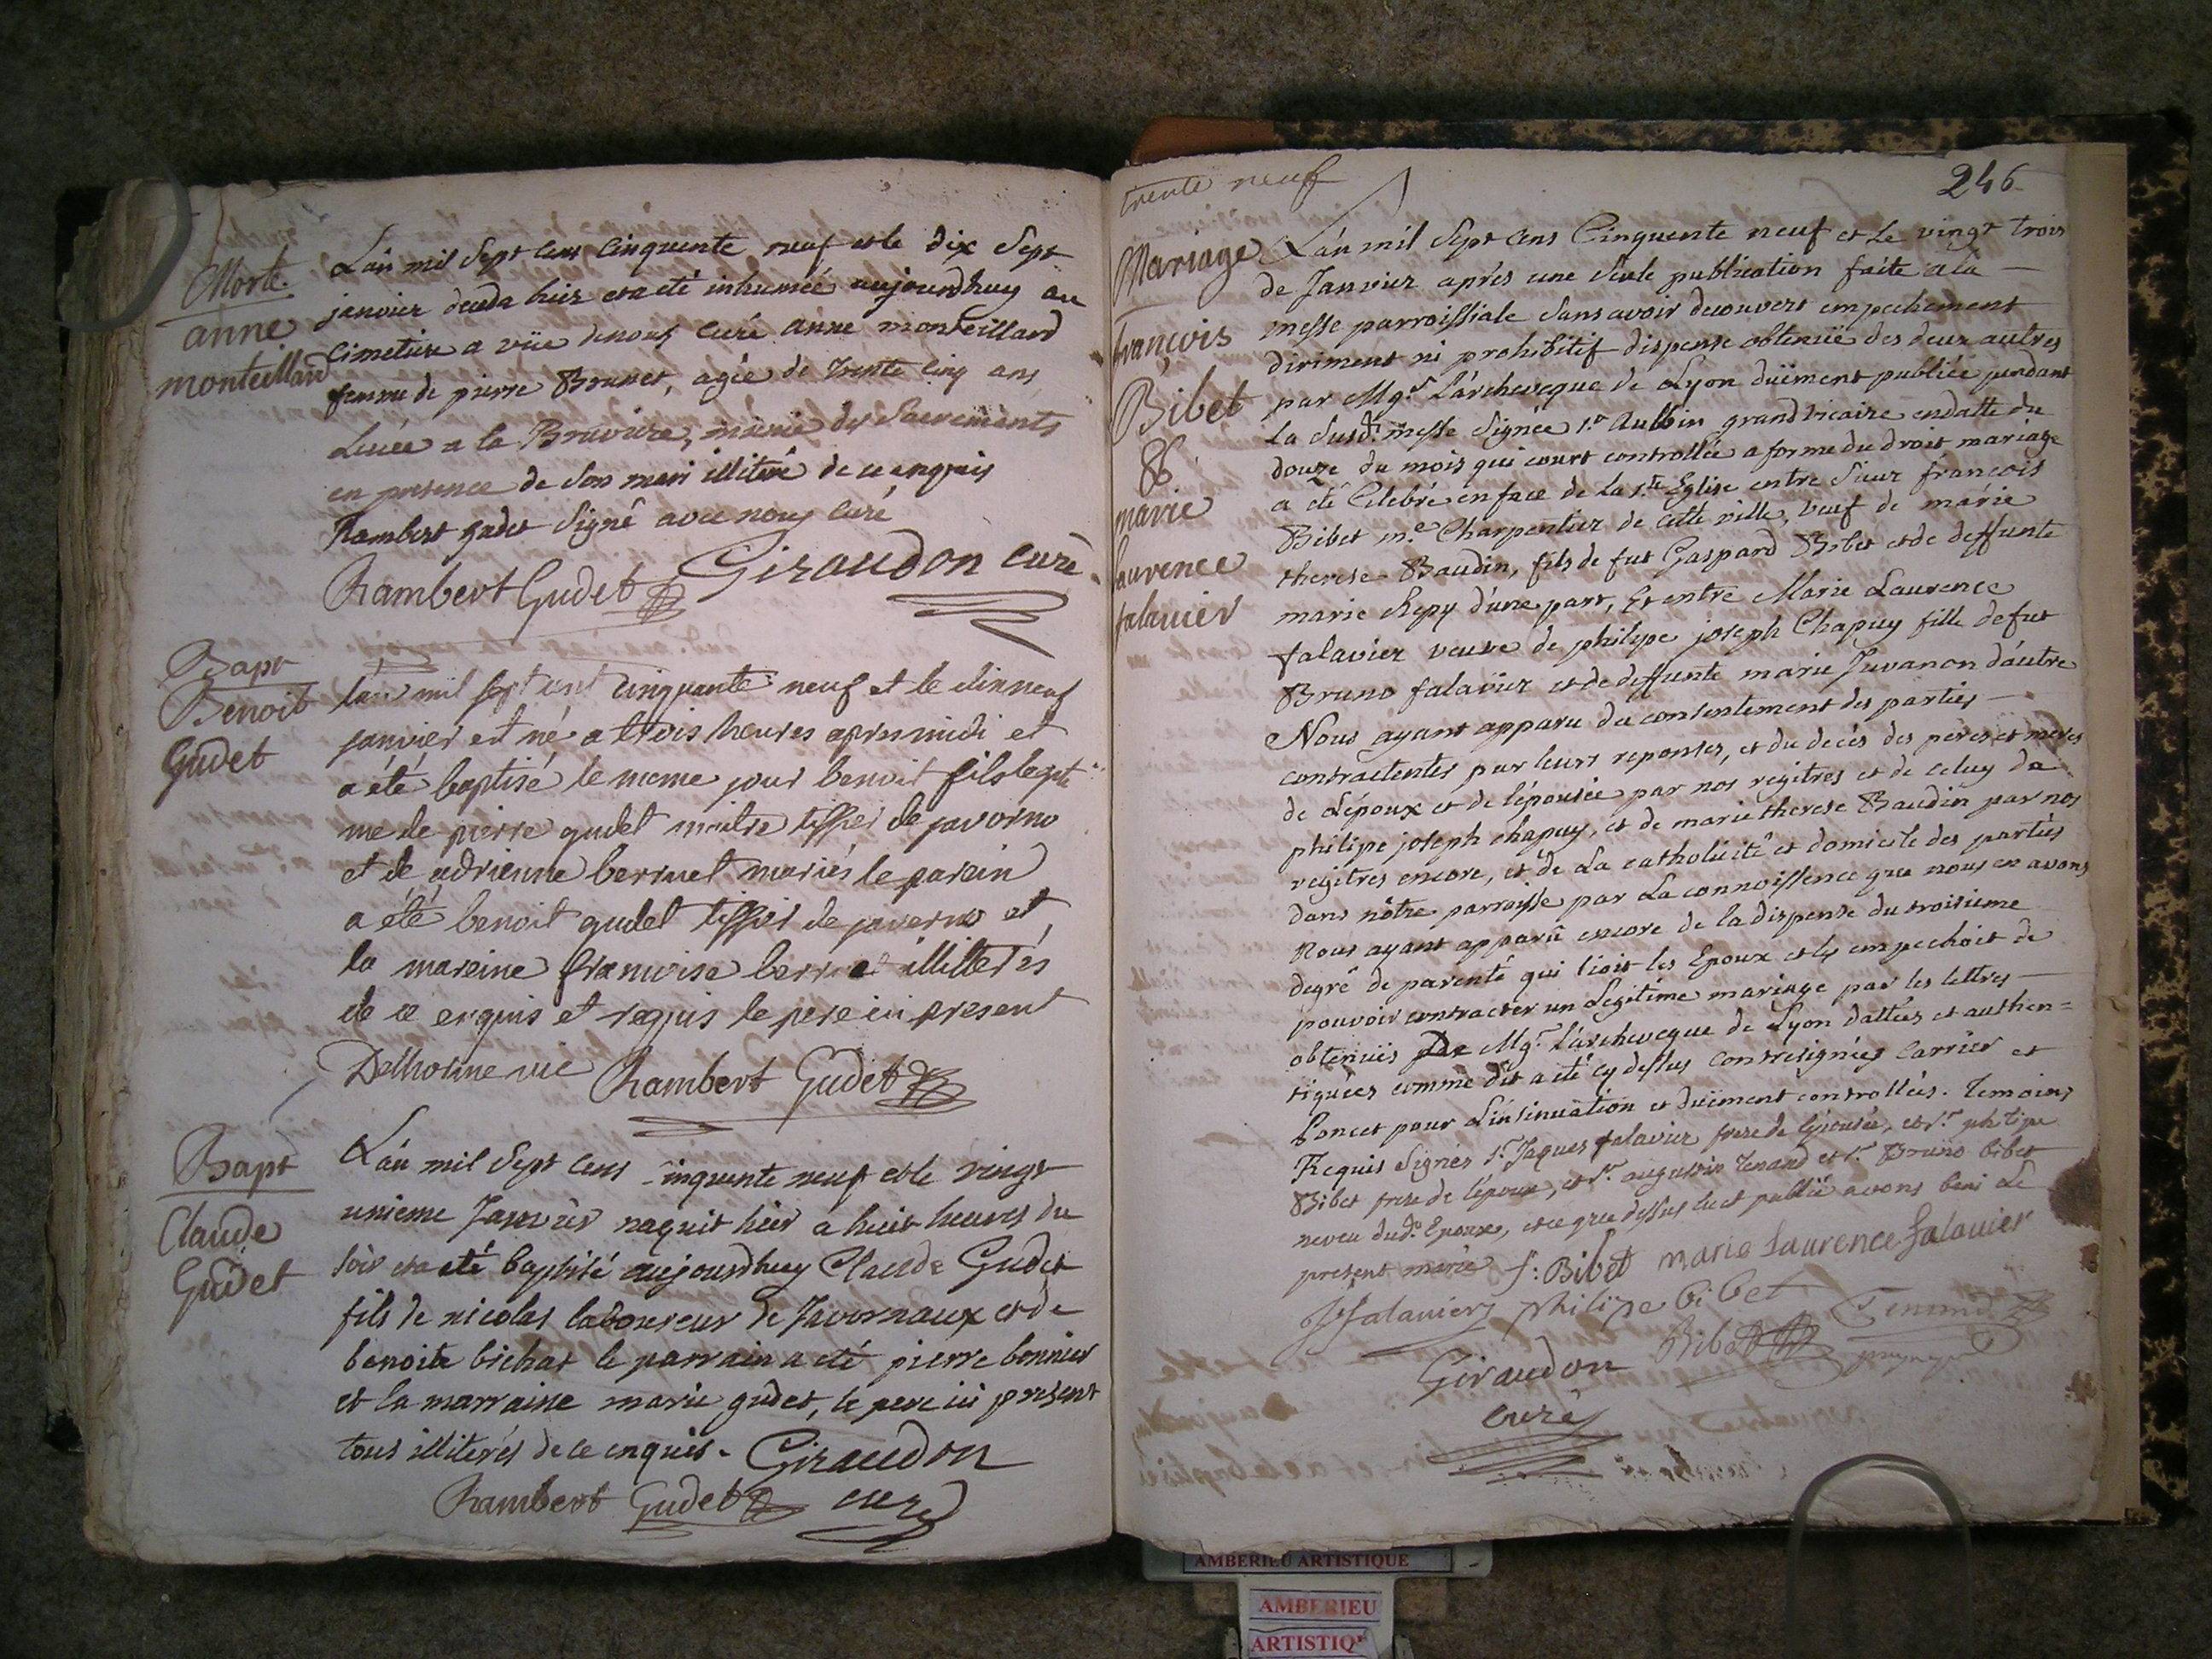 Morte.
anne
monteillard
L'an mil Sept Cens Cinquente neuf et le dix Sept
janvier deceda hier et a eté inhumée aujourdhuy au
Cimetiere a vüe de nous Curé anne monteillard
femme de pierre Brunet, agée de Trente Cinq ans
en presence de Son mari illiteré de ce enquis
Rambert gudet Signé avec nous Curé
Rambert Gudet Giraudon curé
Bapt
Benoit
Gudet
l'an mil sept cent cinquante neuf et le dixneuf
janvier est né a trois heures apres midi et
a été baptisé le meme jour benoit fils legiti
me de pierre gudet maitre tissier de javorno
et de adrienne berruet mariés le parein
a été benoit gudet tissier de javorno et
la mareine francoise illitterés
de ce enquis et requis le pere ici present
Delhorme vic Rambert Gudet
Bapt
Claude
Gudet
L'an mil Sept Cens Cinquente neuf et le vingt
unieme Janvier naquit hier a huit heures du
soir et a eté baptisé aujourdhuy Claude Gudet
fils de nicolas laboureur de Javornaux et de
benoite bichat le parrain a eté pierre bonnier
et la marraine marie gudet, le pere ici present
tous illiterés de ce enquis. Giraudon
Rambert Gudet curé
trente neuf
246
Mariage
françois
Bibet
&
marie
laurence
falavier
L'an mil Sept Cens Cinquente neuf et Le vingt trois
de Janvier après une Seule publication faite a la
messe parroissiale Sans avoir decouvert empechement
diriment ni prohibitif dispense obtenüe des deux autres
par Mgr. L'archeveque de Lyon duëment publiée pendant
La Susd. messe Signée Sr. Aubbin grand vicaire en datte du
douze du mois qui court controllée a forme du droit mariage
a eté Celebré en face de La Ste. Eglise entre Sieur françois
Bibet me. Charpentier de cette ville, veuf de marie
therese Baudin, fils de fut Gaspard Bibet et de deffunte
marie Repy d'une part, Et entre Marie Laurence
falavier veuve de philipe joseph Chapuy fille de fut
Bruno falavier et de deffunte marie Juvanon d'autre
Nous ayant apparu du consentement des parties
contractentes par leurs reponses, et du decés des peres et meres
de L'époux et de l'épousée par nos regitres et de celuy de
philipe joseph chapuy, et de marie therese Baudin par nos
regitres encore, et de La catholicité et domicile des parties
dans nôtre parroisse par La connoissence que nous en avons
Nous ayant apparu encore de la dispense du troisieme
degré de parenté qui lioit les Epoux et les empechoit de
pouvoir contracter un Legitime mariage par les lettres
obtenües par Mgr. L'archeveque de Lyon dattées et authen=
tiquées comme dit a eté cy dessus contresignées Carrier et
Poncet pour L'insinuation et duëment controllées. Temoins
Requis Signés Sr. Jaques falavier frere de l'épousée, et Sr. philipe
Bibet frere de l'époux, et Sr. augustin Tenand et Sr. Bruno bibet
neveu dud. Epoux, et ce que dessus lu et publié avons beni Le
present mariage f: Bibet marie laurence falavier
J falavier philipe bibet Tenand
Bibet
Giraudon
curé
AMBERIEU ARTISTIQUE
AMBERIEU
ARTISTIQ